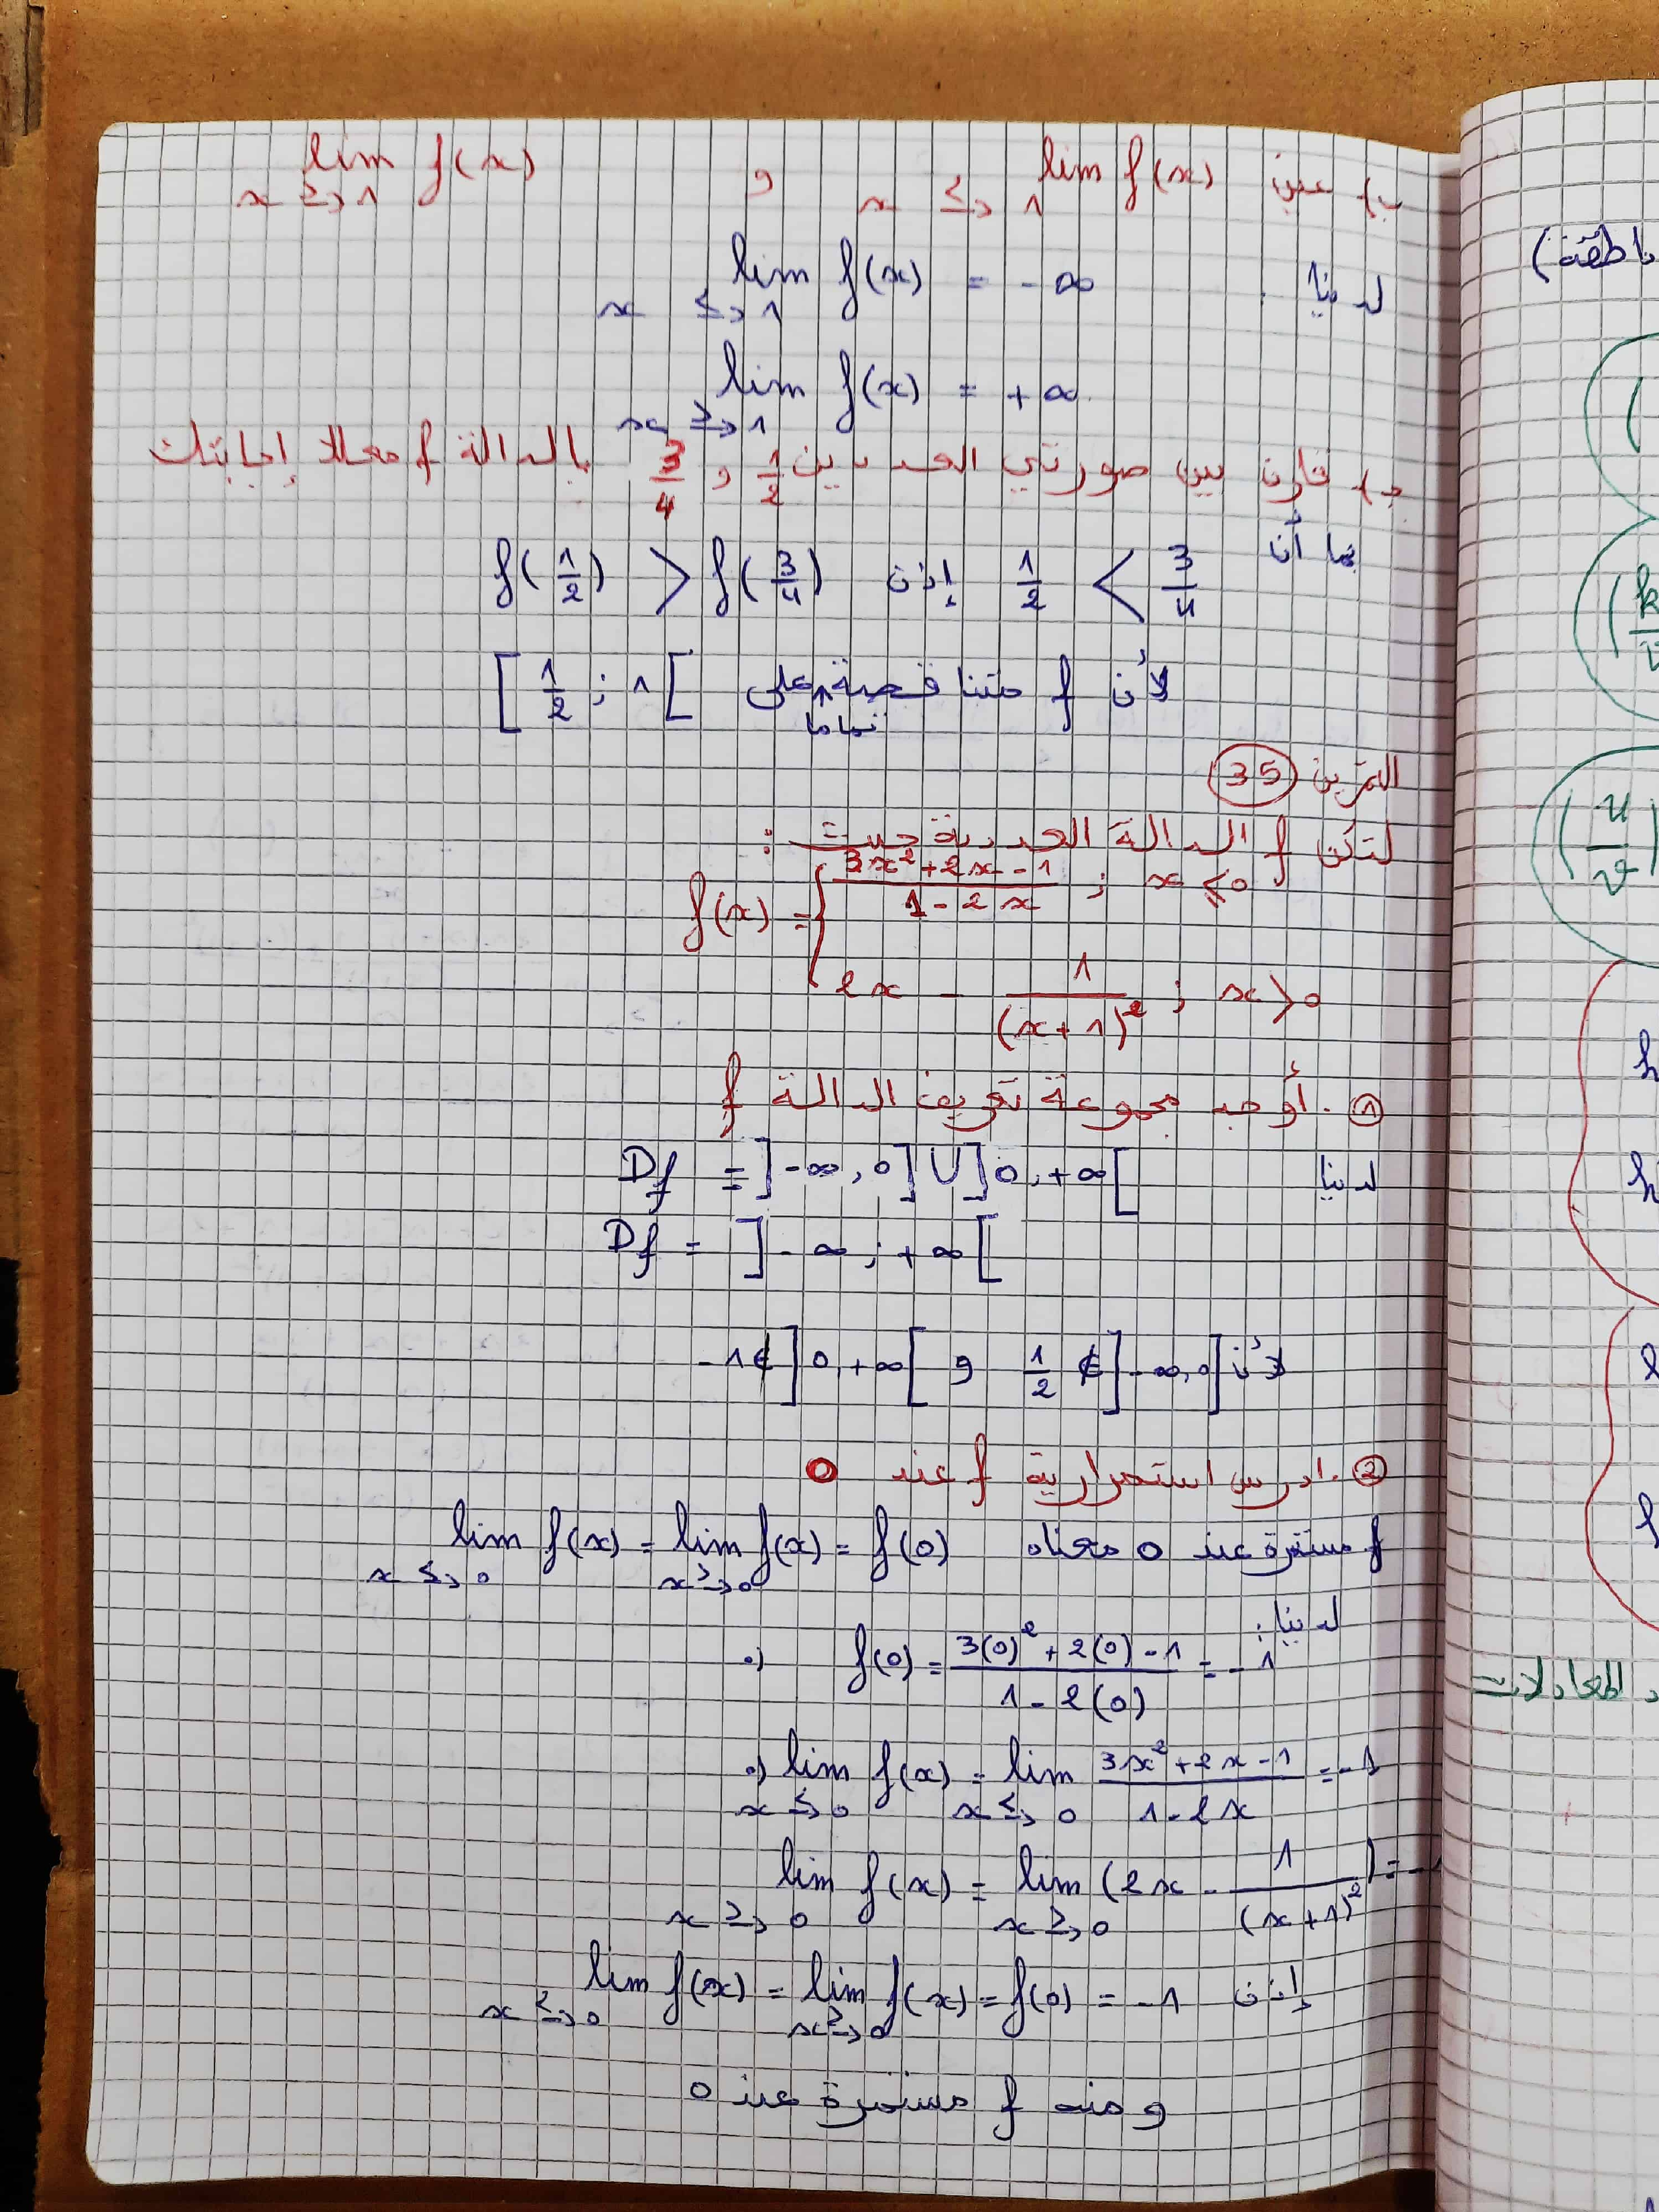 ب) عين lim f(x) x ≤→ 1 و lim f(x) x ≥→ 1
لدينا lim f(x) = -∞ x ≤→ 1
lim f(x) = +∞ x ≥→ 1
ج) قارن بين صورتي العددين 1/2 و 3/4 بالدالة f معللا إجابتك
بما أن 1/2 < 3/4 إذن f(1/2) > f(3/4)
لأن f متناقصة تماما على [1/2 ; 1[
التمرين 35
لتكن f الدالة العددية حيث :
f(x) = { (3x²+2x-1)/(1-2x) ; x ⩽ 0
2x - 1/(x+1)² ; x > 0
① . أوجد مجموعة تعريف الدالة f
لدينا Df = ]-∞, 0] U ]0 ; +∞[
Df = ]-∞ ; +∞[
لأن 1/2 ∉ ]-∞, 0] و -1 ∉ ]0, +∞[
② . ادرس استمرارية f عند 0
f مستمرة عند 0 معناه lim f(x) x ≤→ 0 = lim f(x) x ≥→ 0 = f(0)
لدينا :
•) f(0) = (3(0)² + 2(0) - 1)/(1 - 2(0)) = -1
•) lim f(x) x ≤→ 0 = lim x ≤→ 0 (3x²+2x-1)/(1-2x) = -1
lim f(x) x ≥→ 0 = lim x ≥→ 0 (2x - 1/(x+1)²) = -1
إذن lim f(x) x ≤→ 0 = lim f(x) x ≥→ 0 = f(0) = -1
و منه f مستمرة عند 0
اطقة)
(
(k
(u/v)
h
h
l
f
المعادلات